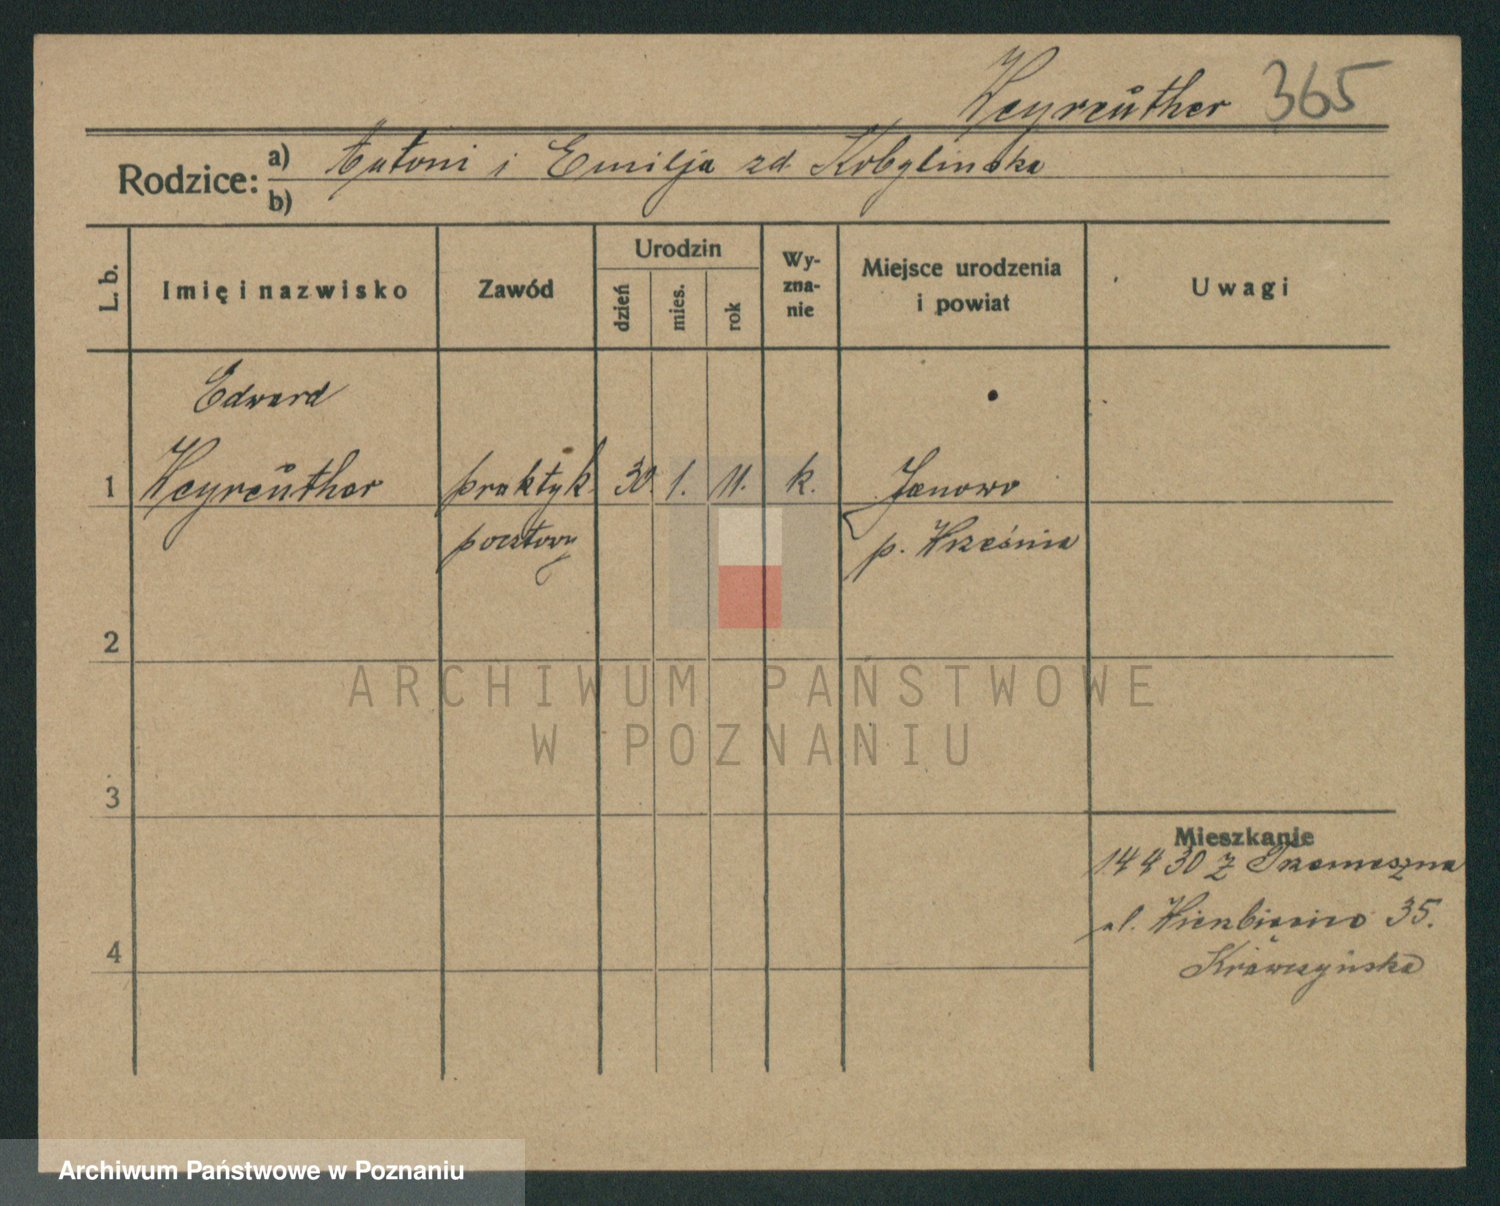 Weyreuther 365
Rodzice: a) Antoni i Emilja zd. Kobylinska
b)
L. b.
Imię i nazwisko
Zawód
Urodzin
dzień
mies.
rok
Wy-
zna-
nie
Miejsce urodzenia
i powiat
Uwagi
Edward
1 Weyreuther praktyk. 30. 1. 11. k. Janowo
pocztowy p. Września
2
3
4
Mieszkanie
14 4 30 z Trzemeszna
ul. Wierzbięcice 35.
Krawczyńska
ARCHIWUM PAŃSTWOWE
W POZNANIU
Archiwum Państwowe w Poznaniu